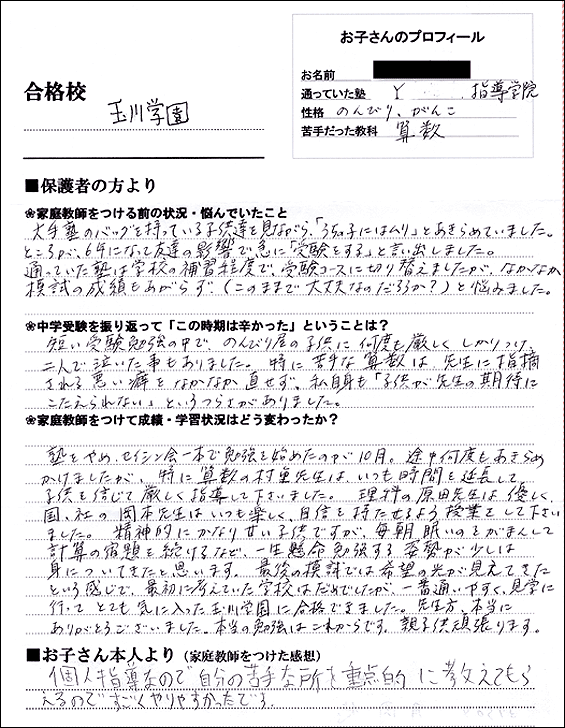 お子さんのプロフィール
お名前
通っていた塾 Y 指導学院
性格 のんびり、がんこ
苦手だった教科 算数
合格校
玉川学園
■保護者の方より
❀家庭教師をつける前の状況・悩んでいたこと
大手塾のバッグを持っている子供達を見ながら、「うちの子にはムリ」とあきらめていました。
ところが、6年になって友達の影響で急に「受験をする」と言い出しました。
通っていた塾は学校の補習程度で、受験コースに切り替えましたが、なかなか
模試の成績もあがらず、(このままで大丈夫なのだろうか?)と悩みました。
❀中学受験を振り返って「この時期は辛かった」ということは?
短い受験勉強の中で、のんびり屋の子供に何度も厳しくしかりつけ、
二人で泣いた事もありました。特に苦手な算数は、先生に指摘
される悪い癖をなかなか直せず、私自身も「子供が先生の期待に
こたえられない」というつらさがありました。
❀家庭教師をつけて成績・学習状況はどう変わったか?
塾をやめ、セイシン会一本で勉強を始めたのが10月。途中何度もあきらめ
かけましたが、特に算数の村里先生は、いつも時間を延長して
子供を信じて厳しく指導して下さいました。理科の原田先生は優しく、
国、社の岡本先生はいつも楽しく、自信を持たせるよう授業をして下さい
ました。精神的にかなりせい子供ですが、毎朝眠いのをがまんして
計算の宿題を続けるなど、一生懸命勉強する姿勢が少しは
身についてきたと思います。最後の模試では希望の光が見えてきた
という感じで、最初に考えていた学校はだめでしたが、一番通いやすく、見学に
行ってとても気に入った玉川学園に合格できました。先生方、本当に
ありがとうございました。本当の勉強はこれからです。親子供頑張ります。
■お子さん本人より(家庭教師をつけた感想)
個人指導なので自分の苦手な所を重点的に教えてもら
えるのですごくやりやすかったです。